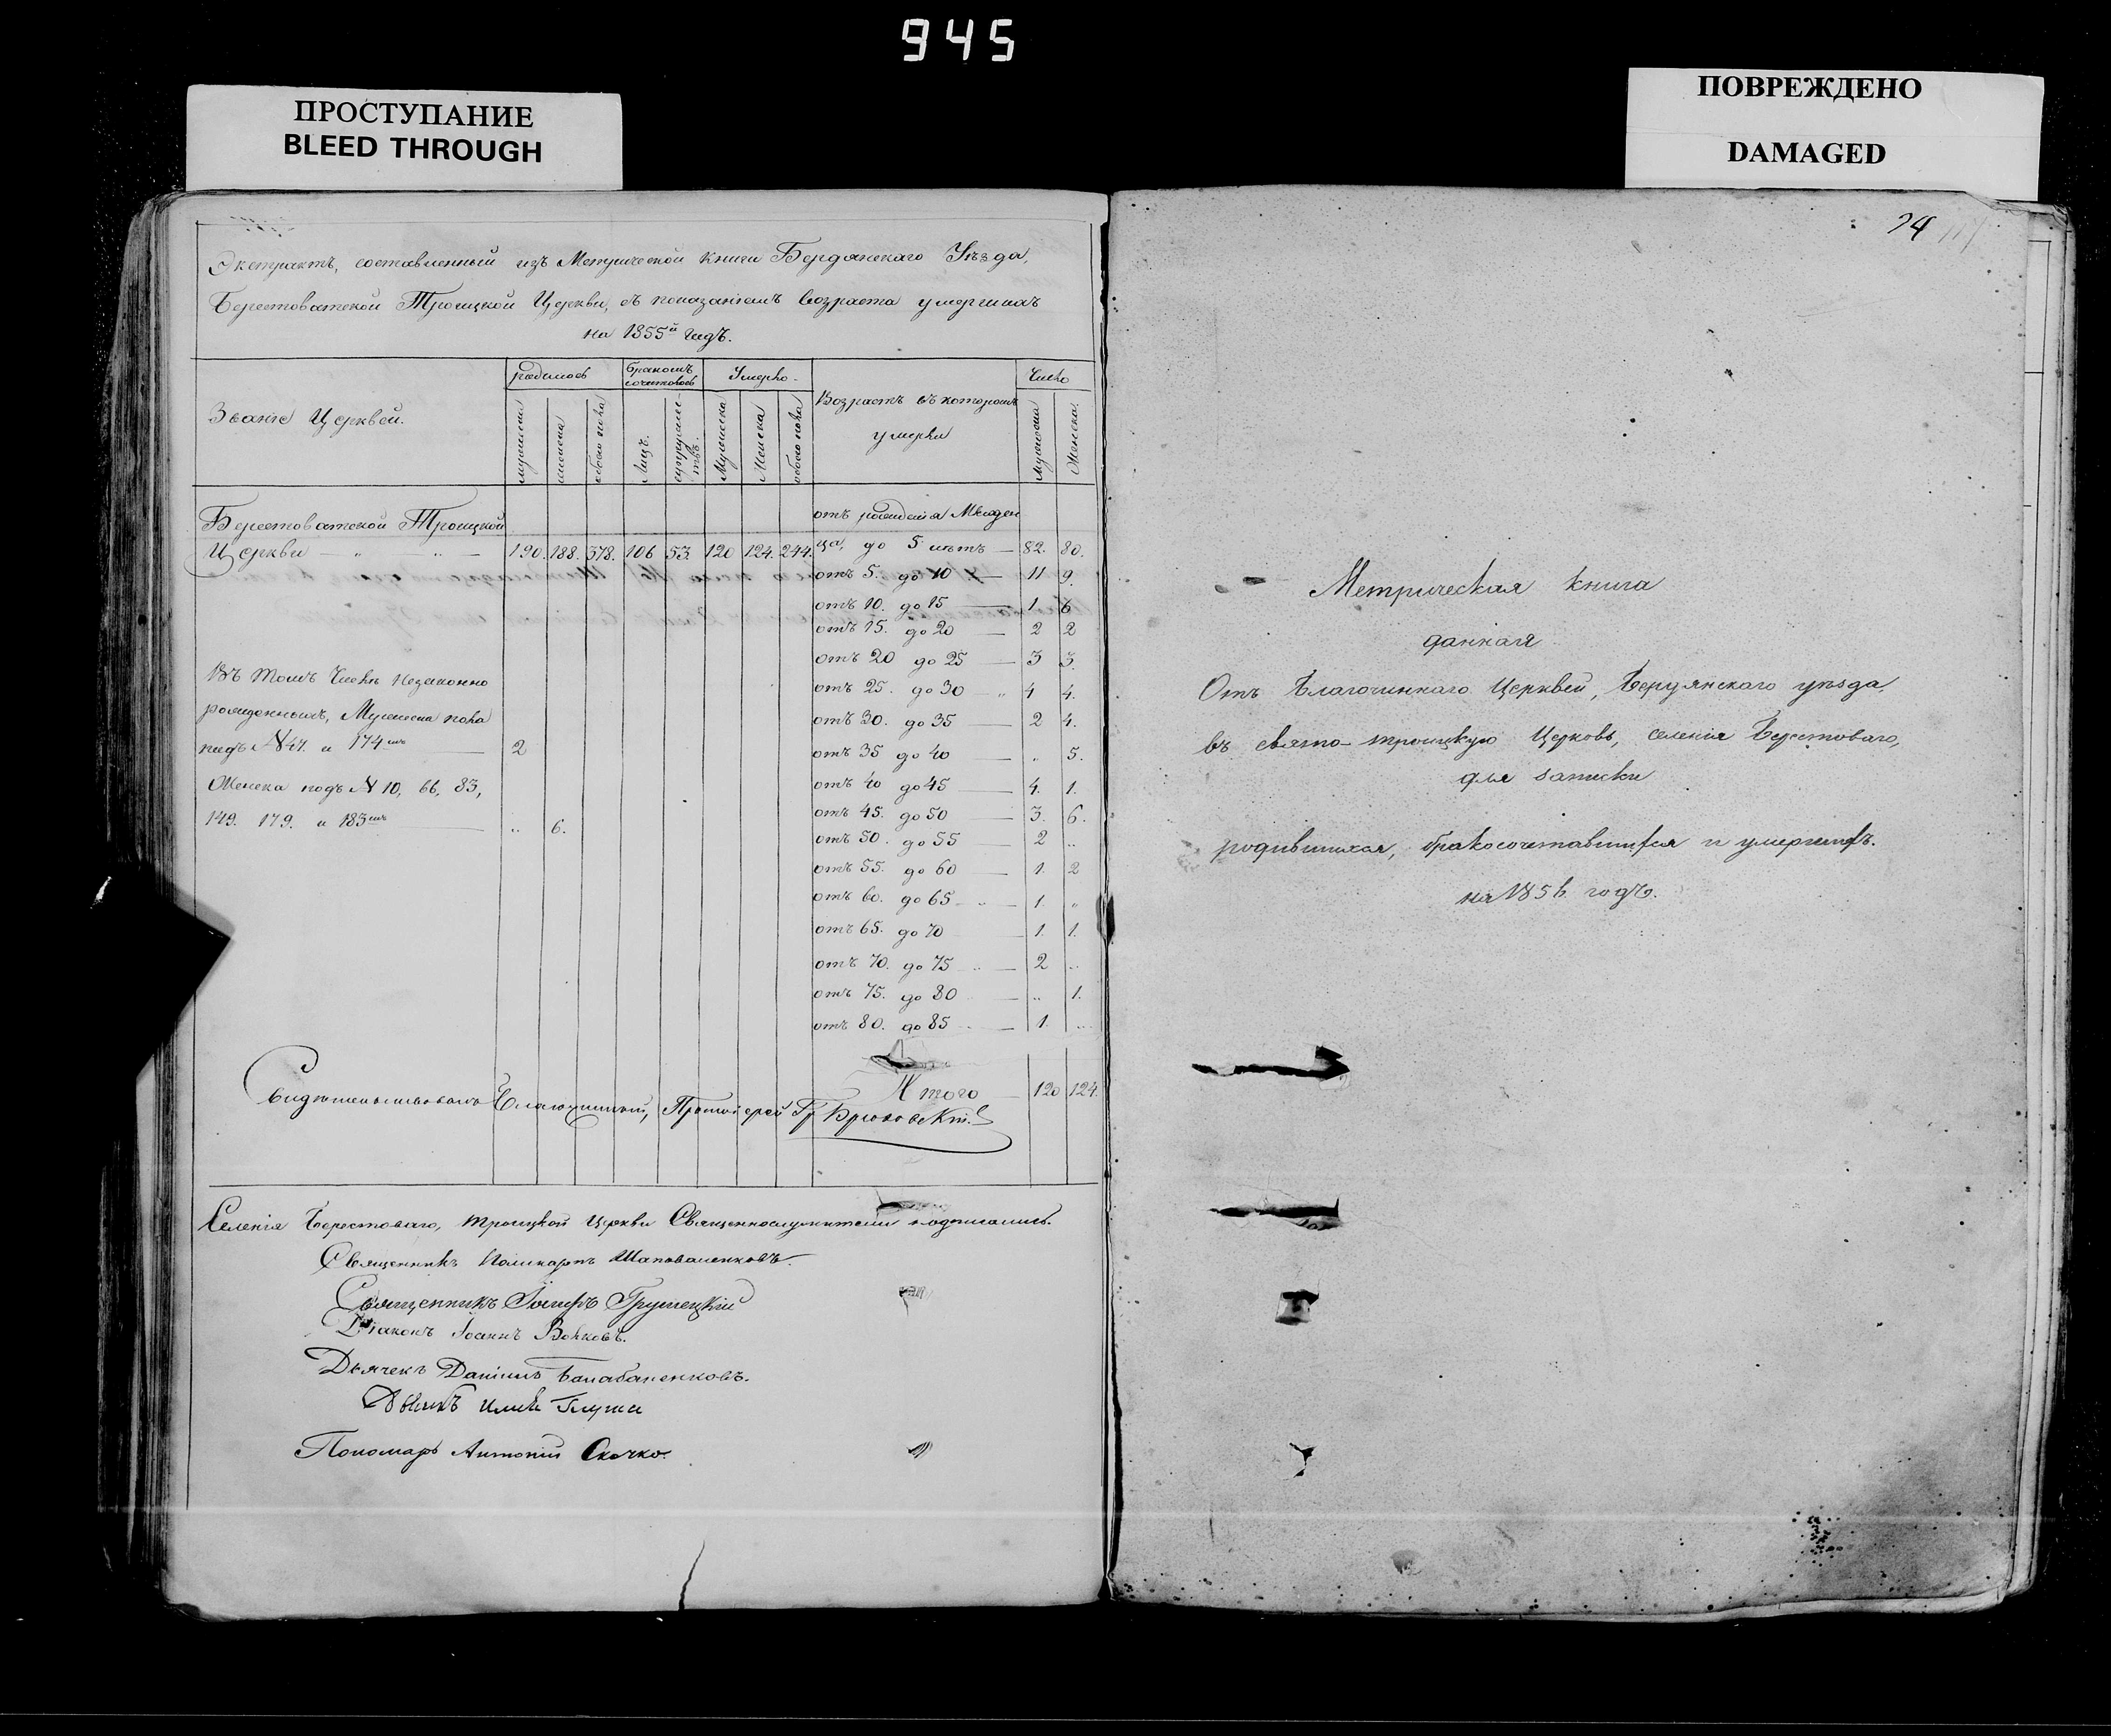 945
ПРОСТУПАНИЕ
BLEED THROUGH
ПОВРЕЖДЕНО
DAMAGED
24
Экстрактъ, составленный изъ Метрической книги Бердянскаго Уѣзда,
Берестоватской Троицкой Церкви, съ показанiемъ возраста умершихъ
на 1855й годъ.
Званiе Церквей.
родилось
бракомъ
сочеталось
Умерло
Возрастъ въ которомъ
умерли
Число
мужеска
женска
обоего пола
Лицъ.
супружествъ.
Мужеска
Женска
обоего пола
мужеска
Женска.
Берестоватской Троицкой
Церкви — „ „ — 190. 188. 378. 106 53 120 124. 244.
отъ рожденiя Младен
ца, до 5 лѣтъ — 82. 80.
отъ 5. до 10 — 11 9.
отъ 10. до 15 — 1. 6
отъ 15. до 20 — 2 2
отъ 20 до 25 — 3 3.
отъ 25. до 30 „ 4 4.
отъ 30. до 35 — 2 4.
отъ 35 до 40 — „ 5.
отъ 40 до 45 — 4. 1.
отъ 45. до 50 — 3. 6.
отъ 50. до 55 — 2 „
отъ 55. до 60 — 1. 2
отъ 60. до 65 „ — 1. „
отъ 65. до 70 — 1. 1.
отъ 70. до 75 „ — 2 „
отъ 75. до 80 — „ 1.
отъ 80. до 85 „ — 1. „
Итого — 120 124.
Въ томъ числѣ незаконно
рожденныхъ, Мужеска пола
подъ №47. и 174мъ — 2
Женска подъ № 10, 66, 83,
149. 179. и 183мъ — „ 6.
Свидѣтельствовалъ Благочинный, Протоiерей Гр Брюховскiй
Селенiя Берестоваго, троицкой Церкви Священнослужители подписались.
Священникъ Поликарпъ Шаповаленковъ.
Священникъ Iосифъ Грушецкiй
Дiаконъ Iоаннъ Волковъ.
Дьячекъ Данiилъ Балабаненковъ.
Пономарь Антонiй Скочко.
Метрическая книга
данная
Отъ Благочиннаго Церквей, Бердянскаго уѣзда,
въ свято-троицкую Церковь, селенiя Берестоваго,
для записки
родившихся, бракосочетавшихся и умершихъ.
на 1856 годъ.